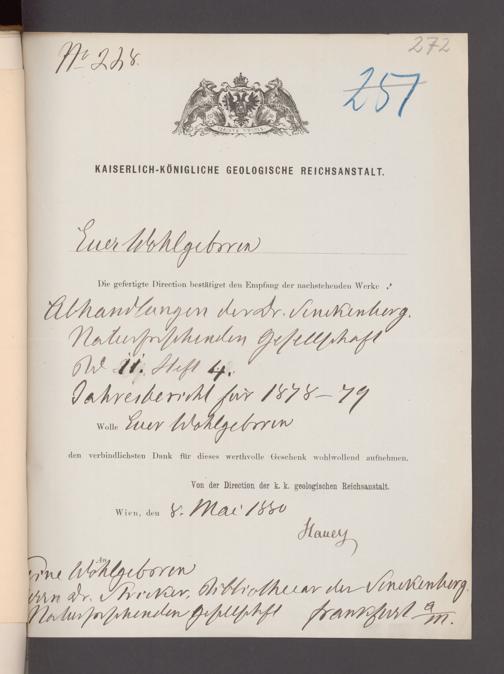 No 228.
272
257
KAISERLICH-KÖNIGLICHE GEOLOGISCHE REICHSANSTALT.
Euer Wohlgeboren
Die gefertigte Direction bestätiget den Empfang der nachstehenden Werke :
Abhandlungen der Dr. Senckenberg.
Naturforschenden Gesellschaft
Bd 11. Heft 4.
Jahresbericht für 1878–79
Wolle Euer Wohlgeboren
den verbindlichsten Dank für dieses werthvolle Geschenk wohlwollend aufnehmen.
Von der Direction der k. k. geologischen Reichsanstalt.
Wien, den 8. Mai 1880
Hauer
An
Seine Wohlgeboren
Herrn Dr. Stricker, Bibliothecar der Senckenberg.
Naturforschenden Gesellschaft Frankfurt a/m.